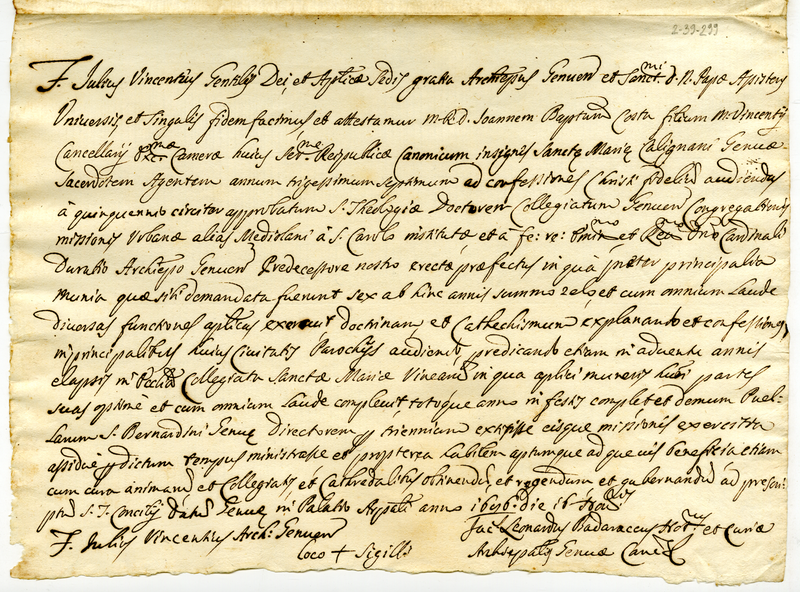 2-39-299
F. Julius Vincentius Gentilis Dei, et Aplicæ Sedis gratia Archiepus Genuen et Sanct.mi d. N. Papæ Assistens
Universis, et Singulis fidem facimus et attestamur m. Joannem Baptam Costa filium m. Vincentij
Cancellarij Exc.mæ Cameræ huius Ser.me Reipublicæ Canonicum insignis Sanctæ Mariæ Calignani Genuæ
Sacerdotem Agentem annum trigessimum septimum ad confessiones Christi fidelium audiendas
à quinquennio circiter approbatum S. Theologiæ Doctorem Collegiatum Genuen Congregationis
missionis Urbanæ alias Mediolani à S. Carolo institutæ et à fe: re: Emin.mo et Re.mo Dno Cardinali
Duratio Archiepo Genuen Predecessore nostro erectæ præfectus in qua præter principalia
munia quæ sibi demandata fuerunt sex ab hinc annis summo zelo, et cum omnium laude
diversas functiones aplicas exercuit doctrinam et Cathechismum explanando et confessiones
in principalibus huius Civitatis Parochijs audiendo, predicando etiam in adventu annis
elapsis in Collegiata Sanctæ Mariæ Vinearum in qua aplici muneris sui partes
suas optimè et cum omnium laude complevit totoque anno in festis complet et domum Puel-
larum S. Bernardini Genuæ Directorem p triennium extitisse eisque missionis exercitia
assidue p dictum tempus ministrasse et propterea habilem aptumque ad quævis beneficia etiam
cum cura animarum et Collegiatis, et Cathedralibus obtinendum, et regendum et gubernandum ad prescri-
ptum S. T. Concilij Datum Genuæ in Palatio Archiepali anno 1696. die 16
F. Julius Vincentius Arch. Genuen
Jac. Leonardus Badaraccus Not.us et Curiæ
loco + Sigilli
Archiepalis Genuæ Canc.